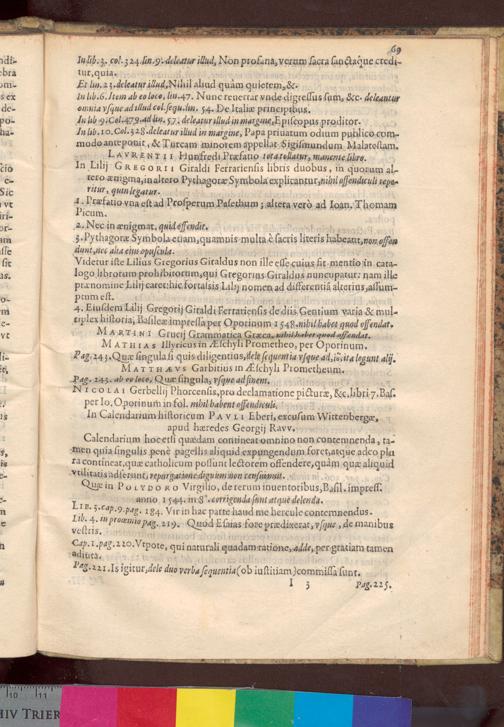 69
In lib. 3. col. 324. lin. 9. deleatur illud, Non profana, verum sacra sanctaque credi
tur, quia.
Et lin. 23. deleatur illud, Nihil aliud quàm quietem, &c.
In lib. 6. Item ab eo loco, lin. 47. Nunc reuertar vnde digressus sum, &c. deleantur
omnia vsque ad illud col. sequ. lin. 54. De Italiæ principibus.
In lib 9. Col. 479. ad lin. 57. deleatur illud in margine, Episcopus proditor.
In lib. 10. Col. 528. deleatur illud in margine, Papa priuatum odium publico com-
modo anteponit, & Turcam minorem appellat Sigismundum Malatestam.
LAVRENTII Hunfredi Præfatio tota tollatur, manente libro.
In Lilij GREGORII Giraldi Ferrariensis libris duobus, in quorum al-
tero ænigma, in altero Pythagoræ Symbola explicantur, nihil offendiculi repe-
ritur, quin legatur.
1. Præfatio vna est ad Prosperum Pasethum; altera verò ad Ioan. Thomam
Picum.
2. Nec in ænigmat. quid offendit.
3. Pythagoræ Symbola etiam, quamuis multa è sacris literis habeant, non offen
dunt, nec alia eius opuscula.
Videtur iste Lilius Gregorius Giraldus non ille esse cuius fit mentio in cata-
logo librorum prohibitorum, qui Gregorius Giraldus nuncupatur: nam ille
prænomine Lilij caret: hic fortassis Lilij nomen ad differentiã alterius, assum-
ptum est.
4. Eiusdem Lilij Gregorij Giraldi Ferrariensis de diis Gentium varia & mul-
tiplex historia, Basileæ impressa per Oporinum 1548. nihil habet quod offendat.
MARTINI Crucij Grammatica Græca, nihil habet quod offendat.
MATHIAS Illyricus in Æschyli Prometheo, per Oporinum.
Pag. 243. Quæ singula si quis diligentius, dele sequentia vsque ad, is, ita legunt alij.
MATTHÆVS Garbitius in Æschyli Prometheum.
Pag. 243. ab eo loco, Quæ singula, vsque ad finem.
NICOLAI Gerbellij Phorcensis, pro declamatione picturæ, &c. libri 7. Bas.
per Io. Oporinum in fol. nihil habent offendiculi.
In Calendarium historicum PAVLI Eberi, excusum Wittenbergæ,
apud hæredes Georgij Ravv.
Calendarium hoc etsi quædam contineat omnino non contemnenda, ta-
men quia singulis penè pagellis aliquid expungendum foret, atque adeo plu
ra contineat, quæ catholicum possunt lectorem offendere, quàm quæ aliquid
vtilitatis adferant, repurgatione dignum non censuimus.
Quæ in POLYDORO Virgilio, de rerum inuentoribus, Basil. impress.
anno 1544. in 8°. corrigenda sunt atque delenda.
LIB. 3. cap. 9. pag. 184. Vir in hac parte haud me hercule contemnendus.
Lib. 4. in proœmio pag. 219. Quod Esaias fore prædixerat, vsque, de manibus
vestris.
Cap. 1. pag. 220. Vtpote, qui naturali quadam ratione, adde, per gratiam tamen
adiuta.
Pag. 221. Is igitur, dele duo verba sequentia (ob iustitiam) commissa sunt.
I 3 Pag. 225.
10 11
HIV TRIER